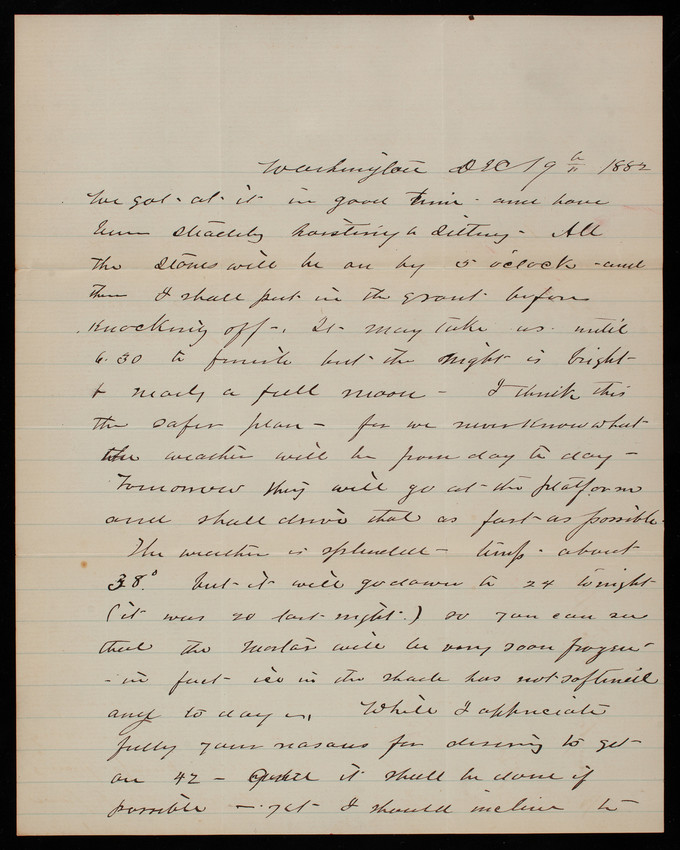 Washington Dec 19th 1882
We got at it in good time - and have
been steadily hoisting & setting - All
the stones will be on by 5 o'clock - and
then I shall put in the grout before
knocking off -. It may take us until
6.30 to finish but the night is bright
& nearly a full moon - I think this
the safer plan - for we never know what
the weather will be from day to day -
Tomorrow they will go at the platform
and shall drive that as fast as possible -
The weather is splendid - temp - about
38.° but it will go down to 24 tonight
(it was 20 last night.) so you can see
that the mortar will be very soon frozen -
- in fact ice in the shade has not softened
any to day. While I appreciate
fully your reasons for desiring to get
on 42 - it shall be done if
possible - yet I should incline to